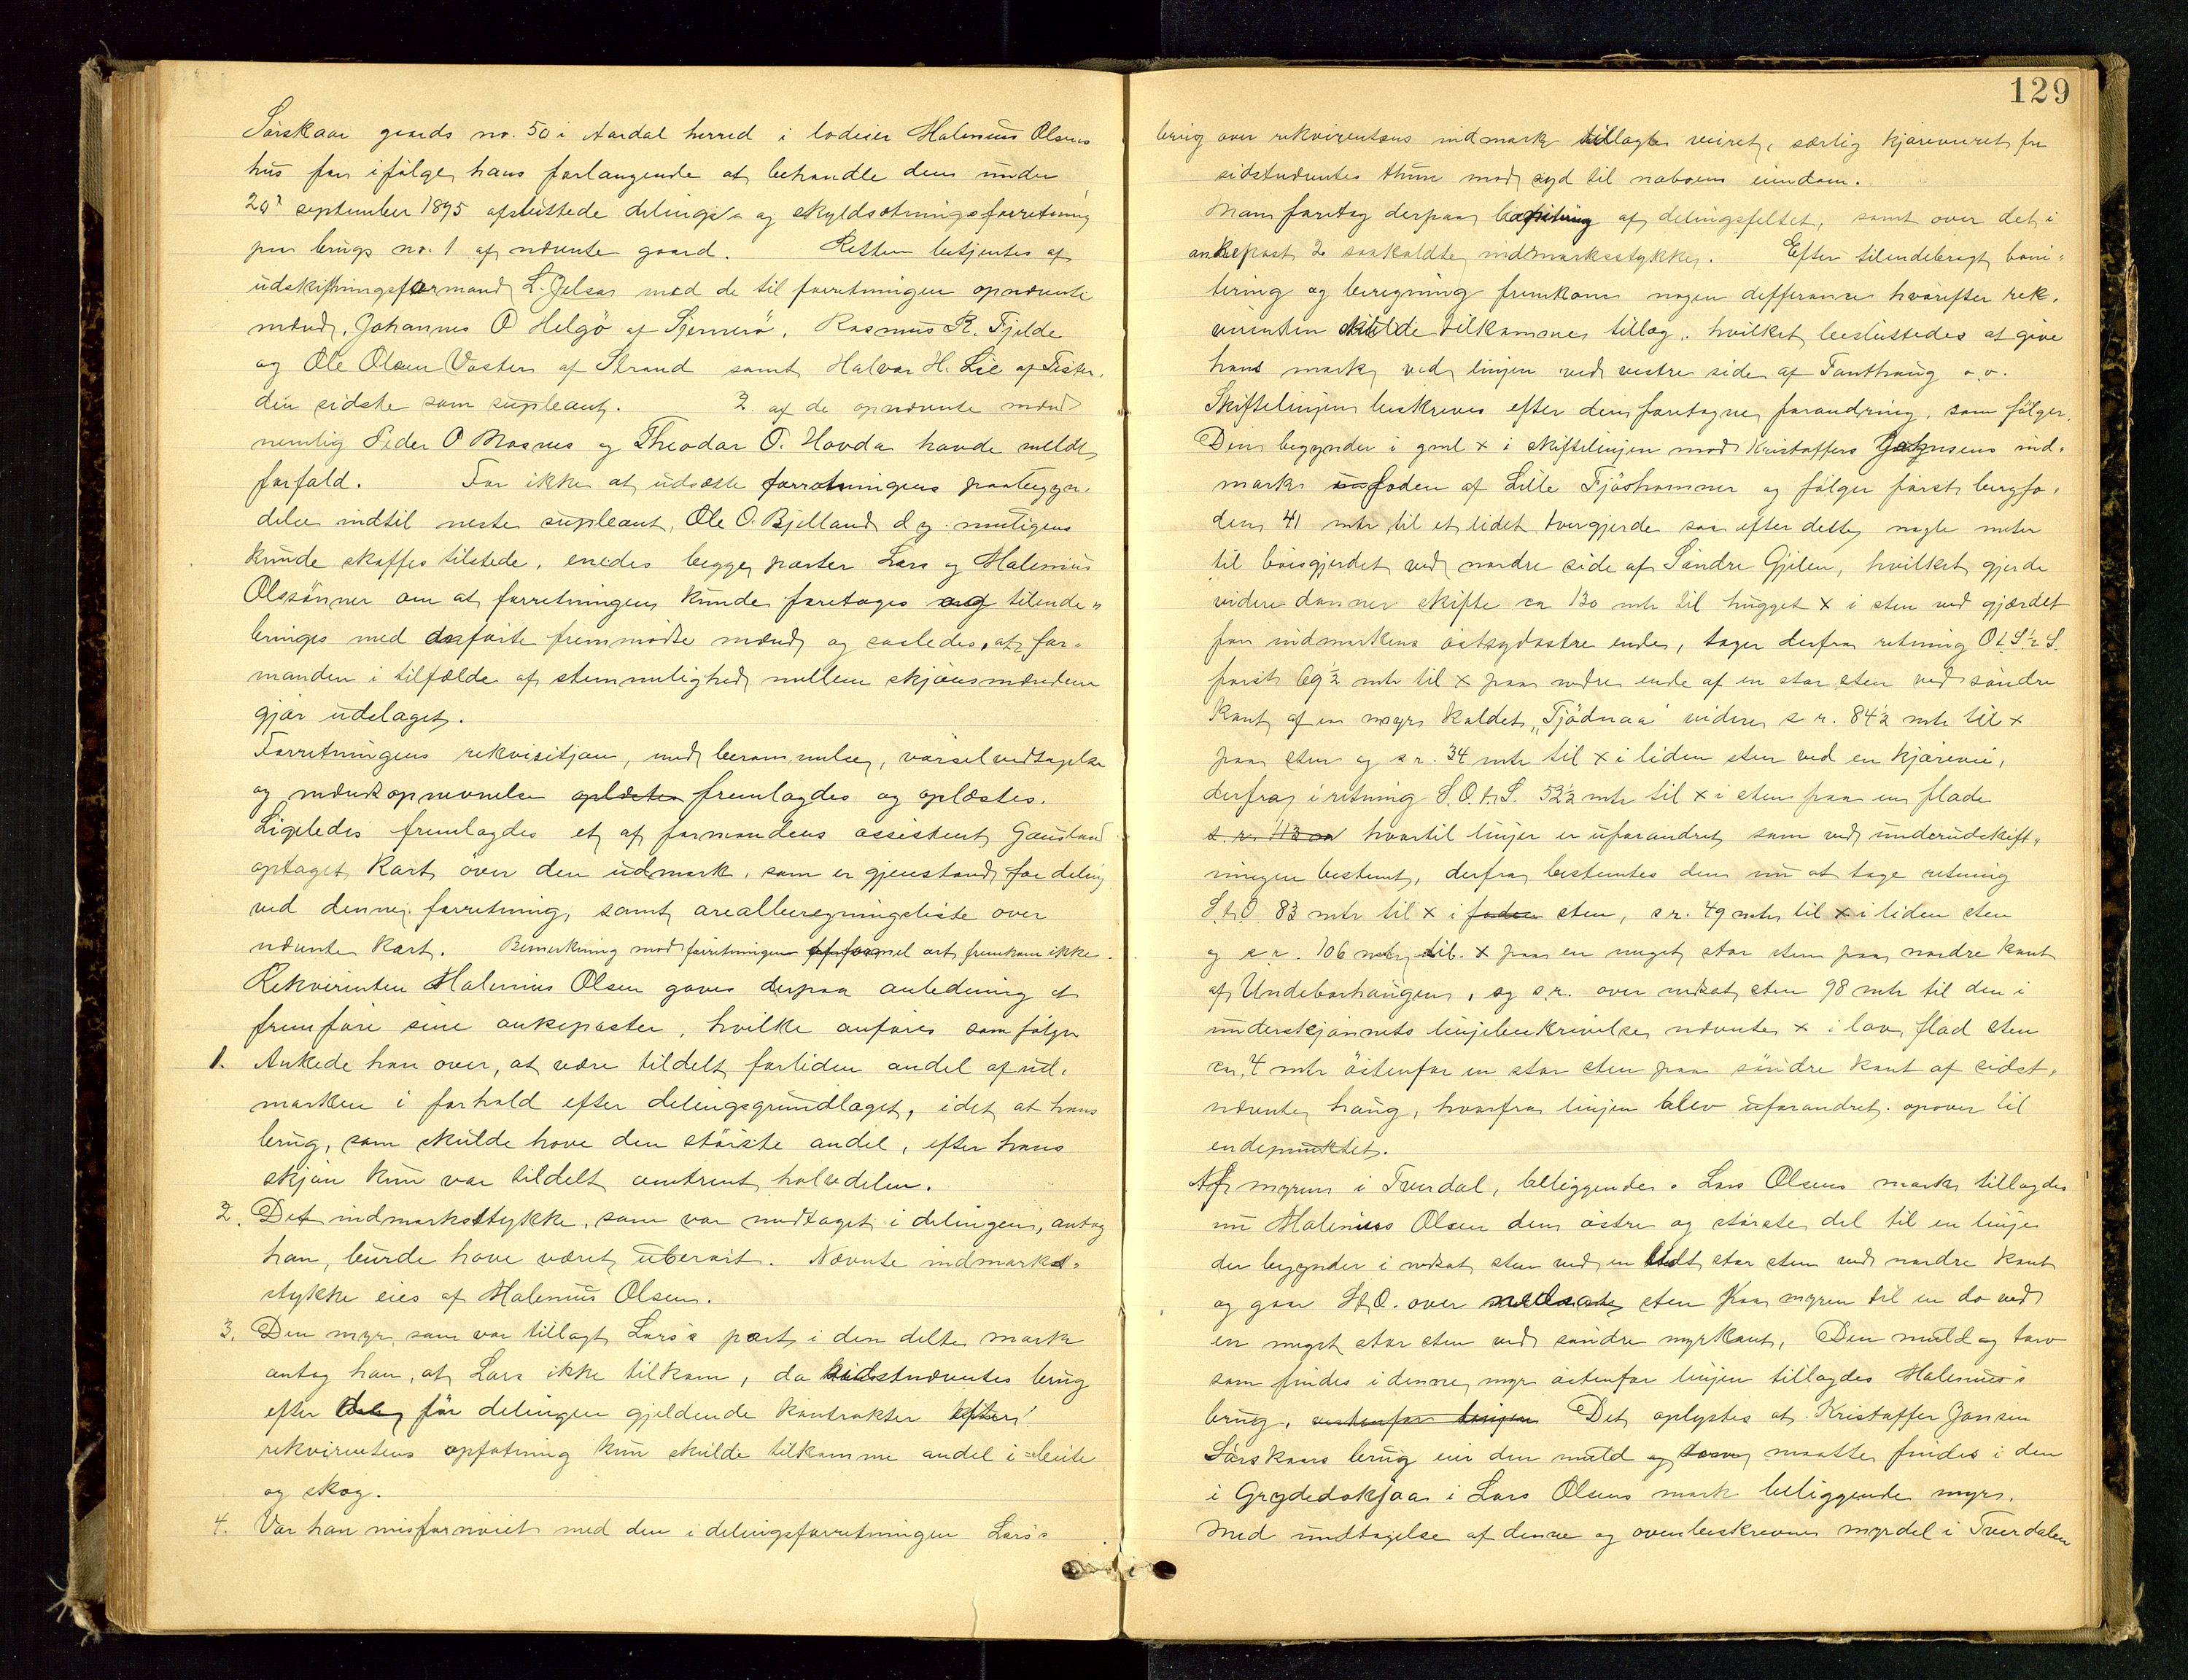 Sörskaar gaards no. 50 i Aardal herred i lodeier Halenius Olsens
hus for ifölge hans forlangende at behandle den under
20de september 1895 afsluttede delings- og skyldsætningsforretning
paa brugs no. 1 af nævnte gaard. Retten betjentes af
udskiftningsformand L. Jelsa med de til forretningen opnævnte
mænd, Johannes O Helgö af Sjernerö, Rasmus R. Fjelde
og Ole Olsen Vaster af Strand samt Halvor H. Lie af Fister,
den sidste som supleant. 2 af de opnævnte mænd
nemlig Peder O Mosnes og Theodor O. Hovda havde meldt
forfald. For ikke at udsætte forretningens paabegyn-
delse indtil neste supleant, Ole O. Bjelland d y. muligens
kunde skaffes tilstede, enedes begge parter Lars og Halenius
Olssönner om at forretningen kunde foretages og tilende-
bringes med de förite fremmödte mænd og saaledes, at for-
manden i tilfælde af stemmelighed mellem skjönsmændene
gjör udslaget.
Forretningens rekvisitjon, med berammelse, varselvedtagelse
og mændsopnevnelse oplæstes fremlagdes og oplæstes.
Ligeledes fremlagdes et af formandens assistent Gausland
optaget kart over den udmark, som er gjenstand for deling
ved denne forretning, samt arealberegningsliste over
nævnte kart. Bemerkning mod forretningen af formel art fremkom ikke.
Rekvirenten Halenius Olsen gaves derpaa anledning at
fremföre sine ankeposter, hvilke anföres som fölger
1. Ankede han over, at være tildelt forliden andel af ud-
marken i forhold efter delingsgrundlaget, idet at hans
brug, som skulde have den störste andel, efter hans
skjön kun var tildelt omtrent halvdelen.
2. Det indmarkstykke, som var medtaget i delingen, antog
han, burde have været uberört. Nævnte indmarks-
stykke eies af Halenius Olsen.
3. Den myr som var tillagt Lars's part i den delte mark
antog han, at Lars ikke tilkom, da sidstnævntes brug
efter för delingen gjeldende kontrakter efter
rekvirentens opfatning kun skulde tilkomme andel i beite
og skog.
4. Var han misfornöiet med den i delingsforretningen Lars's
129
brug over rekvirentens indmark tillagte veiret, særlig kjöreveiret fra
sidstnævntes thun mod syd til naboens eiendom.
Man foretog derpaa befaring af delingsfeltet, samt over det i
ankepost 2 saakaldte indmarksstykke. Efter tilendebragt boni-
tering og beregning fremkom nogen differanse hvorefter rek-
virenten skulde tilkomme tillæg, hvilket besluttedes at give
hans mark ved linjen ved vestre side af Tanthaug o.v.
Skiftelinjen beskrives efter den foretagne forandring, som fölger.
Den begynder i gml x i skiftelinjen mod Kristoffers Johnsens ind-
mark foden af Lille Fjöshammer og fölger först bergfo-
den 41 mtr til et lidet tvergjerde saa efter dette nogle meter
til böisgjerdet ved nordre side af Söndre Gjilen, hvilket gjerde
videre danner skifte ca 130 mtr til hugget x i sten ved gjærdet
paa indmarkens östsydöstre ende, tager derfra retning O t S ½ S.
först 69½ mtr til x paa nedre ende af en stor sten ved söndre
kant af en myr kaldet „Tjödnaa" videre s r. 84½ mtr til x
paa sten og s r. 34 mtr til x i liden sten ved en kjörevei,
derfra i retning S.O.t.S. 52½ mtr til x i sten paa en flade
s. r. 113 m hvortil linjer er uforandret som ved underudskift-
ningen bestemt, derfra bestemtes den nu at tage retning
S.t.O 83 mtr til x i foden sten, s r. 49 mtr til x i liden sten
og s r. 106 mtr til x paa en meget stor sten paa nordre kant
af Undeberhaugen, og s.r. over nedsat sten 98 mtr til den i
underskjönnets linjebeskrivelse nævnte x i lav flad sten
ca. 4 mtr östenfor en stor sten paa söndre kant af sidst-
nævnte haug, hvorfra linjen blev uforandret opover til
endepunktet.
Af myren i Tverdal, beliggende i Lars Olsens mark tillagdes
nu Halenius Olsen den östre og störste del til en linje
der begynder i nedsat sten ved en lidt stor sten ved nordre kant
og gaar StO. over nedsat sten paa myren til en do ved
en meget stor sten ved söndre myrkant, Den muld og torv
som findes i denne myr östenfor linjen tillagdes Halenius's
brug, vestenfor linjen Det oplystes at Kristoffer Jonsen
Sörskaars brug eier den muld og torv maatte findes i den
i Grydedokjaa i Lars Olsens mark beliggende myr.
Med undtagelse af denne og ovenbeskrevne myrdel i Tverdalen